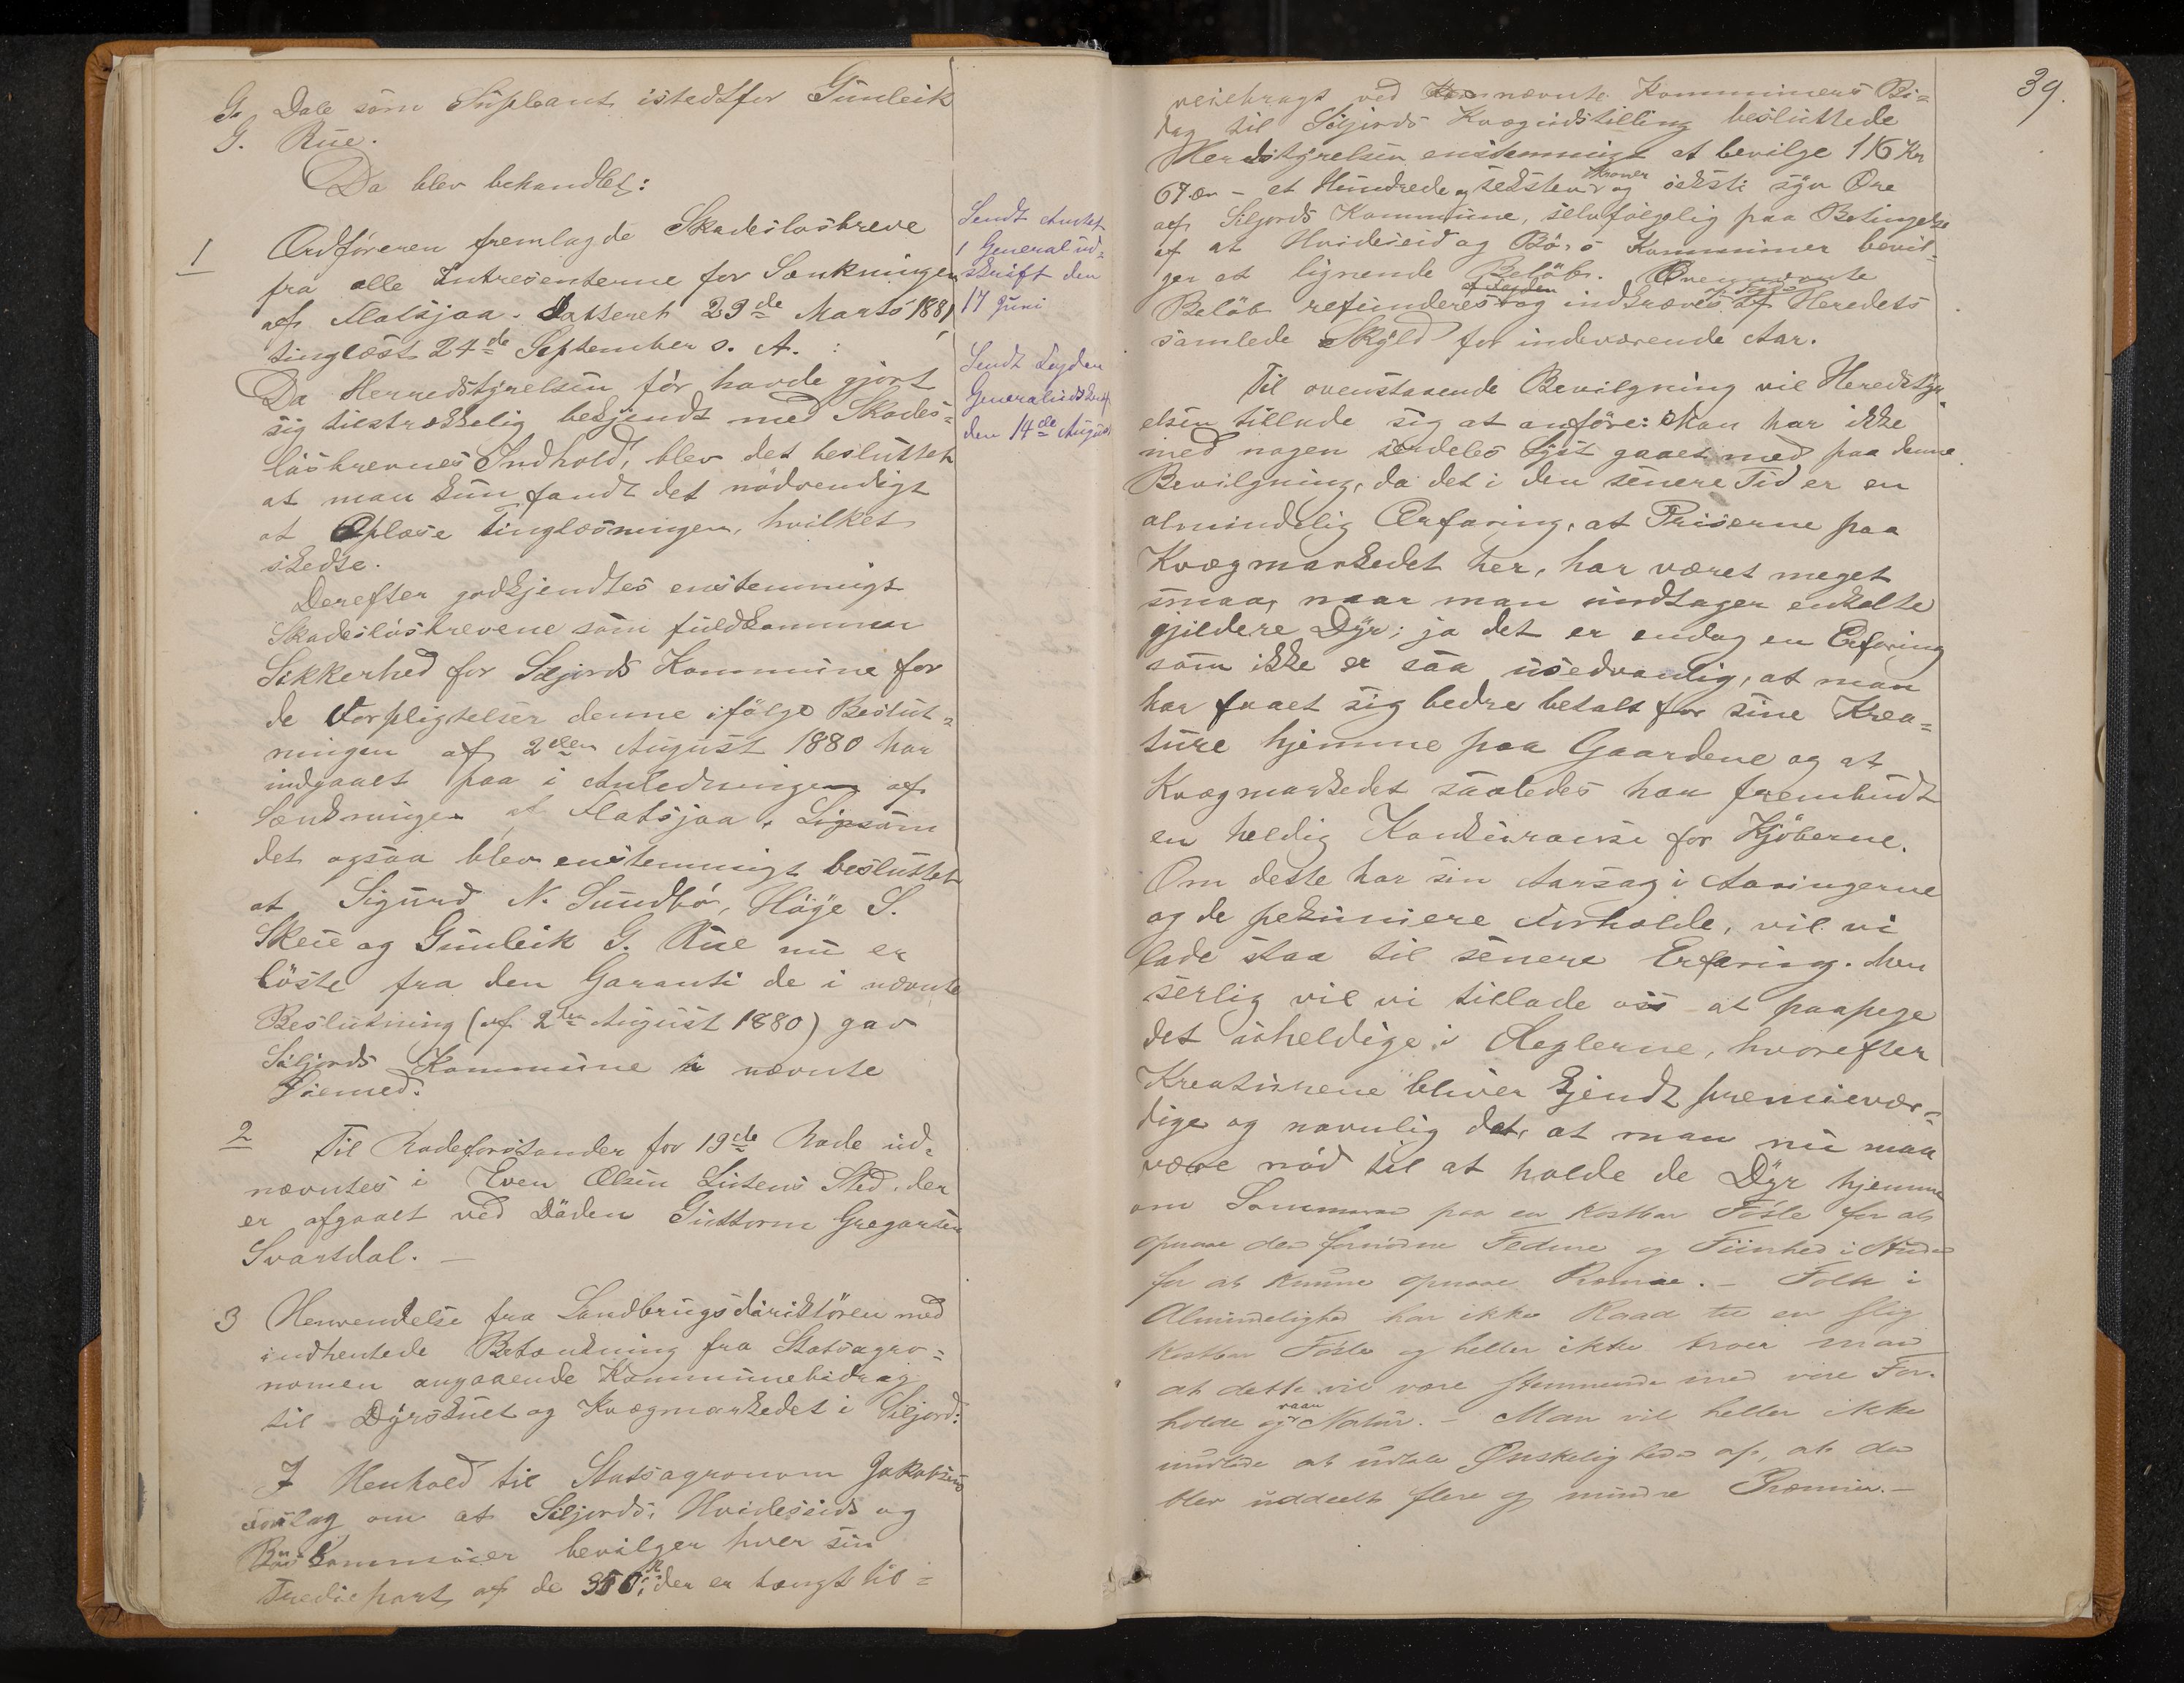 G. Dale som Supleant istedtfor Gunleik
G. Rue.
Da blev behandlet:
1 Ordføreren fremlagde Skadesløsbreve
fra alle Intresenterne for Sænkningen
af Flatsjaa. Datteret 29de Marts 1881,
tinglæst 24de September s. A. :
Da Herredstyrelsen før havde gjort
sig tilstrækkelig bekjendt med Skades-
løsbrevnes Indhold, blev det besluttet
at man kun fandt det nødvendigt
at Oplæse Tinglæsningen, hvilket
skedte.
Derefter godkjendtes enstemmigt
Skadesløsbrevene som fuldkommen
Sikkerhed for Siljords Kommune for
de Forpligtelser denne ifølge Beslut-
ningen af 2den August 1880 har
indgaaet paa i Anledningen af
Sænkningen af Flatsjaa. Ligesom
det ogsaa blev enstemmigt besluttet
at Sigurd N. Sundbø, Høye S.
Skeie og Gunleik G. Rue nu er
løste fra den Garanti de i nævnte
Beslutning (af 2den August 1880) gav
Siljords Kommune i nævnte
Øiemed.
2 Til Rodeforstander for 19de Rode ud-
nævntes i Even Olsen Listens Sted, der
er afgaaet ved Døden Guttorm Gregarsen
Svartdal. —
3 Henvendelse fra Landbrugsdirektøren med
indhentede Betænkning fra Statsagro-
nomen angaaende Kommunebidrag
til Dyrskuet og Kvægmarkedet i Siljord:
I Henhold til Statsagronom Jakobsens
Forslag om at Siljords, Hvideseids og
Bøs Kommuner bevilger hver sin
Trediepart af de 350 Kr, der er tængt til-
Sendt Amtet
1 Generalud-
skrift den
17 Juni
Sendt Fogden
Generaludskrift
den 14de August
39.
veiebragt ved nævnte Kommuners Bi-
dag til Siljords Kvægudstilling besluttede
Herredstyrelsen enstemmigt at bevilge 116 Kr
67 ør - et Hundrede og seksten Kroner og seksti syv Øre
af Siljords Kommune, selvfølgelig paa Betingelse
af at Hvideseid og Bø's Kommuner bevil-
ger et lignende Beløb. Ovennævnte
Beløb refunderes af Fogden og indkræves af Heredets
samlede Skyld for indeværende Aar.
Til ovenstaaende Bevilgning vil Heredstyr-
elsen tillade sig at anføre: Man har ikke
med nogen serdeles Lyst gaaet med paa denne
Bevilgning, da det i den senere Tid er en
almindelig Erfaring, at Priserne paa
Kvægmarkedet her, har været meget
smaa, naar man undtager enkelte
gjildere Dyr; ja det er endog en Erfaring
som ikke er saa usedvanlig, at man
har faaet sig bedre betalt for sine Krea-
ture hjemme paa Gaardene og at
Kvægmarkedet saaledes har frembudt
en heldig Konkurranse for Kjøberne.
Om dette har sin Aarsag i Aaringerne
og de pekuniere Forholde, vil vi
lade staa til senere Erfaring. Men
serlig vil vi tillade oss at paapege
det uheldige i Reglerne, hvorefter
Kreaturene bliver kjendt premievær-
dige og navnlig det, at man nu maa
være nød til at holde de Dyr hjemme
om Sommeren paa en kostbar Føste for at
opnaae den fornødne Fedme og Fiinhed i Huden
for at kunne opnaae Præmie. — Folk i
Almindelighed har ikke Raad til en slig
kostbar Føste og heller ikke troer man
at dette vil være stemmende med vore For-
holde og vaar Natur. — Man vil heller ikke
undlade at udtale Ønskeligheden af, at der
blev uddeelt flere og mindre Præmier. —